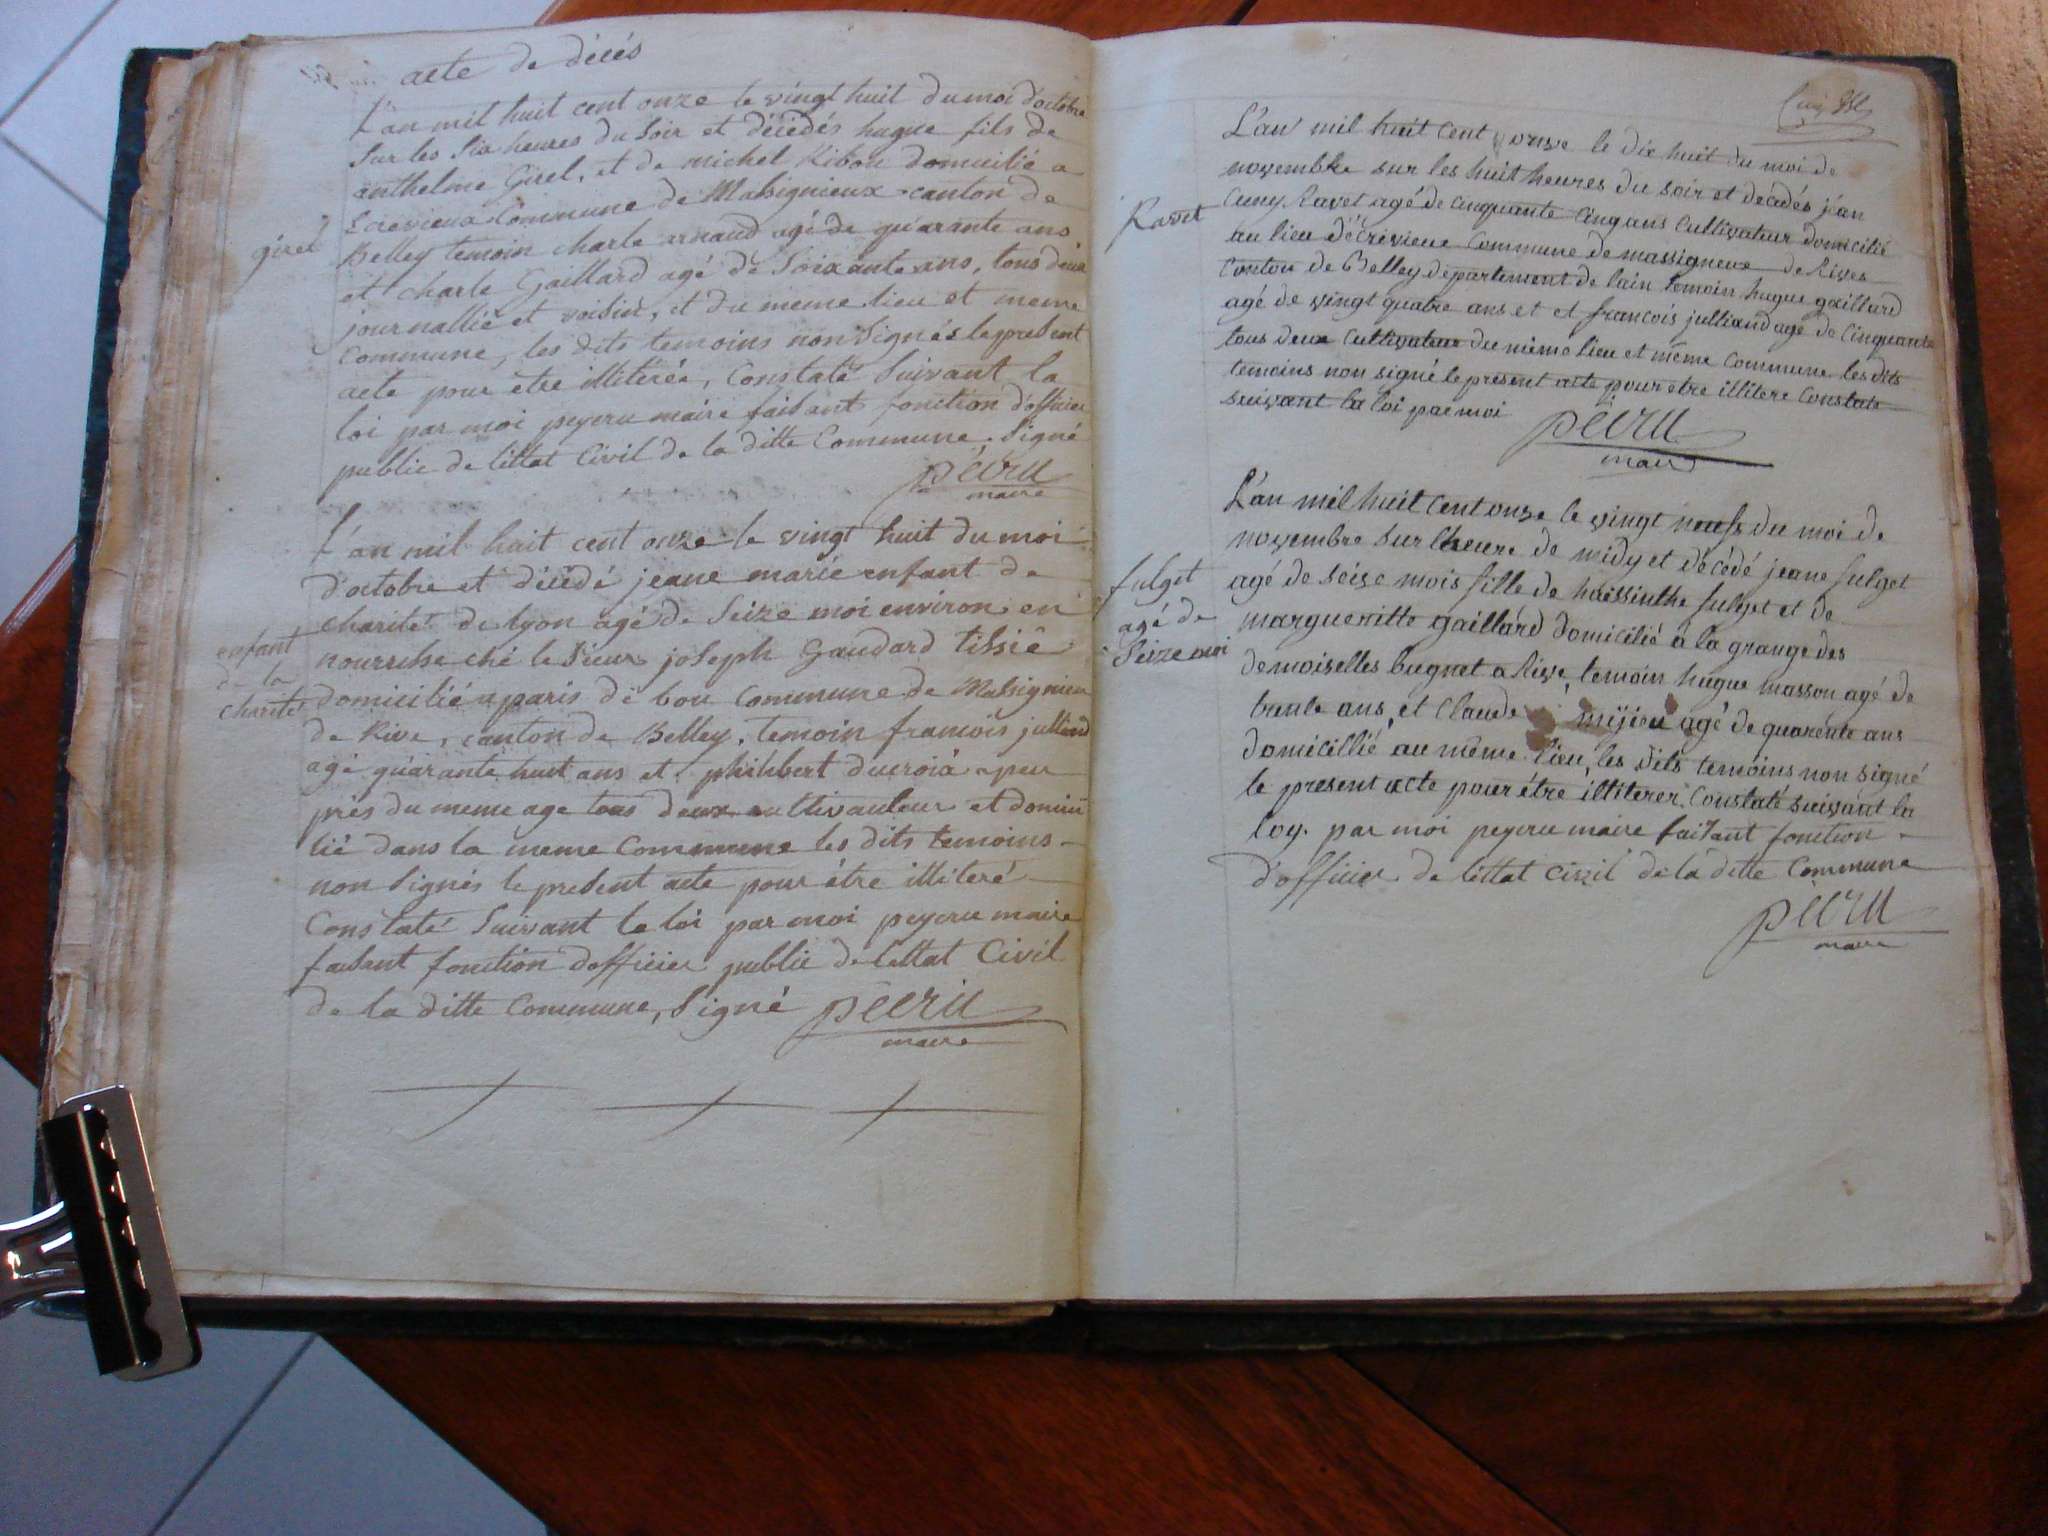 acte de décés
L'an mil huit cent onze le vingt huit du moi d'octobre
sur les six heures du soir et décédés hugue fils de
anthelme Girel, et de michel Ribou domicilié a
Ecrevieux Commune de Massignieux canton de
girel
Belley temoin charle arnaud agé de quarante ans
et charle Gaillard agé de soixante ans, tous deux
journallié et voisin, et du meme lieu et meme
Commune, les dits temoins non signés le present
acte pour etre illiterée, Constaté suivant la
loi par moi peyeru maire faisant fonction d'officier
public de l'ettat Civil de la ditte Commune. signé
péeru
maire
L'an mil huit cent onze le vingt huit du moi
d'octobre et décédé jeane marie enfant de
charitet de lyon agé de seize moi environ en
enfant
de la
charitet
nourrisse ché le sieur joseph Gaudard tissié
domicilié a paris de bou Commune de Massignieu
de Rive, canton de Belley. temoin francois julliand
agé quarante huit ans et philibert ducroix a peu
près du meme age tous deux cultivauteur et domici
lié dans la meme Commune les dits temoins
non signés le present acte pour être illiteré
Constaté suivant la loi par moi peyeru maire
faisant fonction dofficier public de lettat Civil
de la ditte Commune, signé péeru
maire
L'an mil huit cent onze le dix huit du moi de
novembre sur les huit heures du soir et décédés jean
Ravet
Cuny Ravet agé de cinquante cinq ans Cultivateur domicilié
au lieu décrevieux Commune de massigneux de Rives
Conton de Belley département de lain temoin hugue gaillard
agé de vingt quatre ans et et francois julliand age de Cinquante
tous deux Cultivateur du même lieu et même Commune les dits
temoins non signé le present acte pour etre illitere Constaté
suivant la loi par moi
péeru
maire
L'an mil huit Cent onze le vingt neufs du moi de
novembre sur l'heure de midy et décédé jeane fulget
fulget
agé de
seize moi
agé de seise mois fille de hiassinthe fulget et de
marguenitte gaillard domicilié à la grange des
demoiselles bugnet a Rive, temoin hugue masson agé de
trente ans, et Claude mijieu agé de quarente ans
domicillié au même lieu, les dits temoins non signé
le present acte pour être illiterer, Constaté suivant la
loy. par moi peyeru maire faisant fonction
d'officier de l'ettat civil de la ditte Commune
péeru
maire